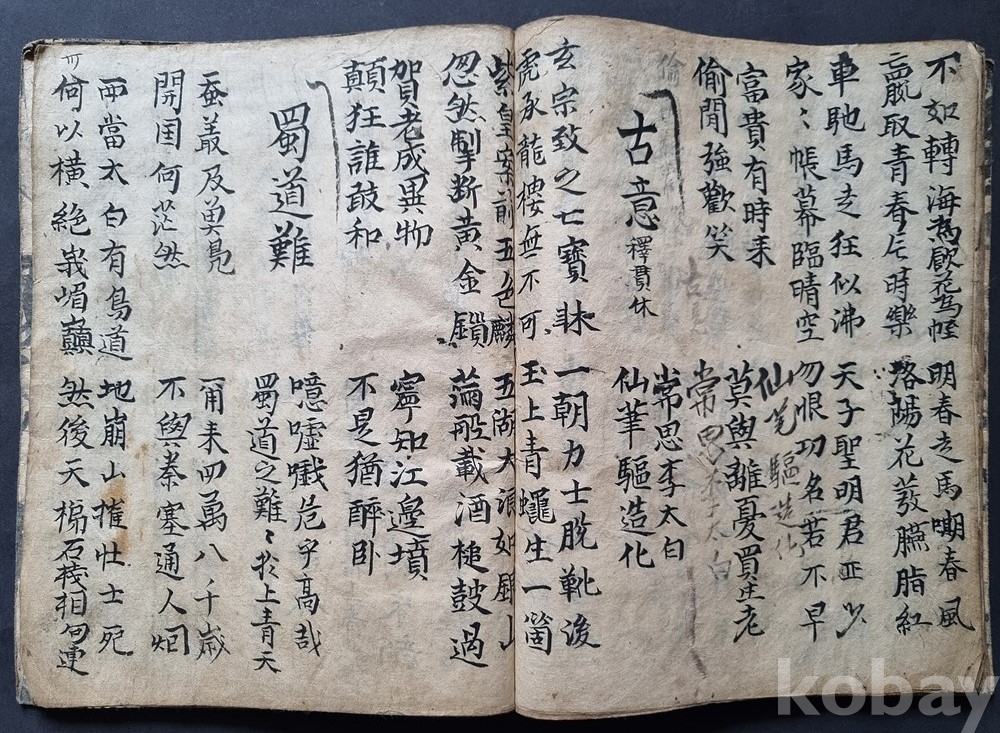 不如轉海爲飮花爲幄
嬴取青春片時樂
明春走馬嘲春風
洛陽花發臙脂紅
車馳馬走狂似沸
家〻帳幕臨晴空
天子聖明君正少
勿恨功名苦不早
富貴有時来
偷閒強歡笑
莫與離憂買生老
仙笔驅造化
常思李太白
古意 釋貫休
常思李太白
仙筆驅造化
玄宗致之七寶牀
虎承龍樓無不可
一朝力士脫靴後
玉上青蠅生一箇
紫皇案前五色麟
忽然掣斷黃金鎖
五湖大浪如銀山
滿船載酒槌鼓過
賀老成異物
顛狂誰敢和
寧知江邊墳
不是猶醉卧
蜀道難
噫噓嚱危乎高哉
蜀道之難〻於上青天
蚕叢及魚鳧
開国何茫然
甭来四萬八千歲
不與秦塞通人烟
西當太白有鳥道
可以橫絕峩嵋巔
地崩山摧壯士死
然後天梯石棧相勾連
kobay